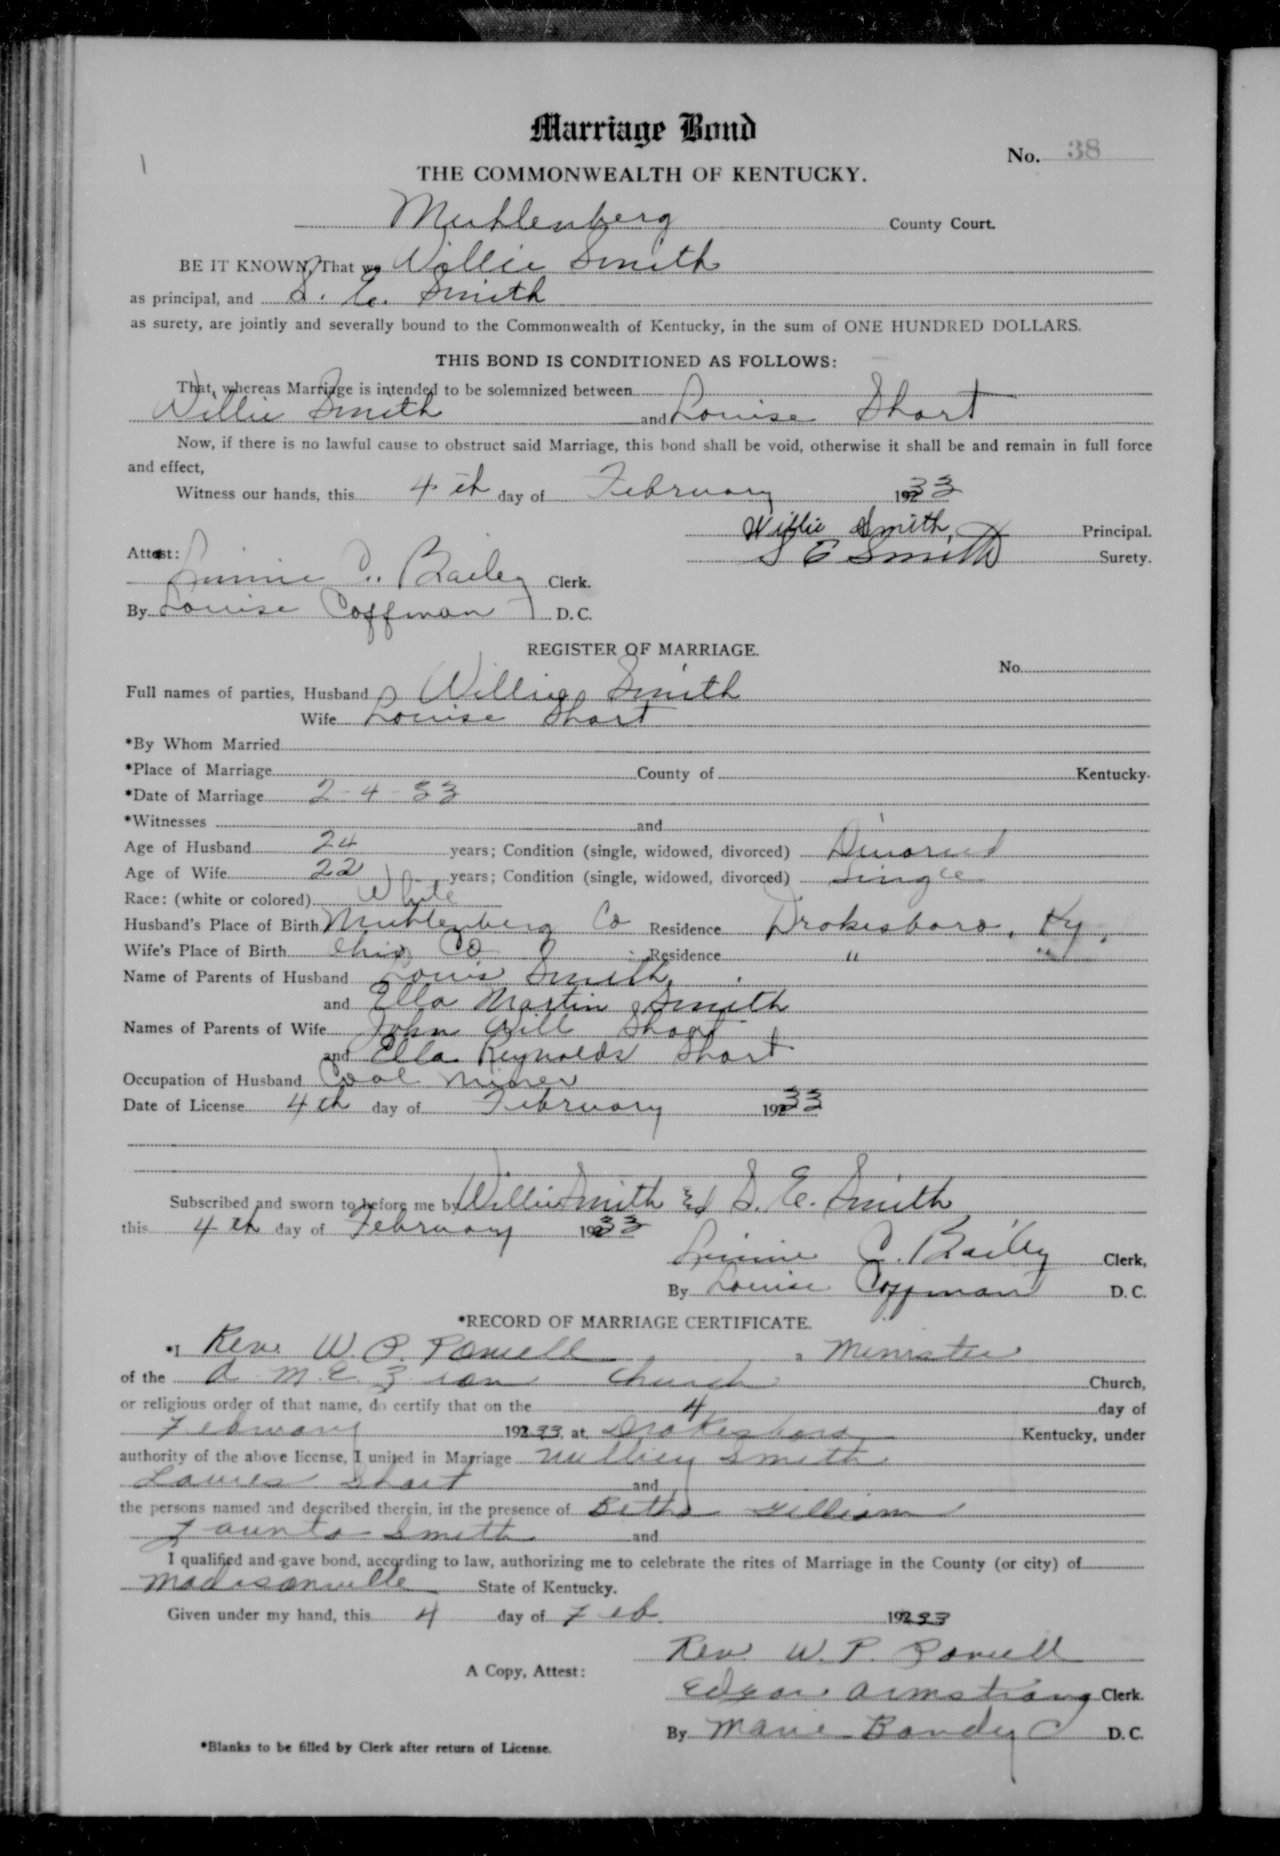 Marriage Bond
No. 38
THE COMMONWEALTH OF KENTUCKY.
Muhlenberg County Court.
BE IT KNOWN, That we Willie Smith
as principal, and S. E. Smith
as surety, are jointly and severally bound to the Commonwealth of Kentucky, in the sum of ONE HUNDRED DOLLARS.
THIS BOND IS CONDITIONED AS FOLLOWS:
That, whereas Marriage is intended to be solemnized between
Willie Smith and Louise Short
Now, if there is no lawful cause to obstruct said Marriage, this bond shall be void, otherwise it shall be and remain in full force
and effect,
Witness our hands, this 4th day of February 1933
Willie Smith, Principal.
S E Smith Surety.
Attest:
Linnie C. Bailey Clerk.
By Louise Coffman D. C.
REGISTER OF MARRIAGE.
No.
Full names of parties, Husband Willie Smith
Wife Louise Short
*By Whom Married
*Place of Marriage County of Kentucky.
*Date of Marriage 2-4-33
*Witnesses and
Age of Husband 24 years; Condition (single, widowed, divorced) Divorced
Age of Wife 22 years; Condition (single, widowed, divorced) Single
Race: (white or colored) White
Husband's Place of Birth Muhlenberg Co Residence Drakesboro, Ky,
Wife's Place of Birth Ohio Co Residence " "
Name of Parents of Husband Louis Smith
and Ella Martin Smith
Names of Parents of Wife John Will Short
and Ella Reynolds Short
Occupation of Husband Coal Miner
Date of License 4th day of February 1933
Subscribed and sworn to before me by Willie Smith & S. E. Smith
this 4th day of February 1933
Linnie C. Bailey Clerk,
By Louise Coffman D. C.
*RECORD OF MARRIAGE CERTIFICATE.
*I Rev. W. P. Powell a Minister
of the A. M. E. Zion Church Church,
or religious order of that name, do certify that on the 4 day of
February 1933, at Drakesboro Kentucky, under
authority of the above license, I united in Marriage Smith
Short and
the persons named and described therein, in the presence of
Smith and
I qualified and gave bond, according to law, authorizing me to celebrate the rites of Marriage in the County (or city) of
Madisonville State of Kentucky.
Given under my hand, this 4 day of Feb. 1933
Rev. W. P. Powell
A Copy, Attest:
Edgar Armstrong Clerk.
By Marie Bandy D. C.
*Blanks to be filled by Clerk after return of License.